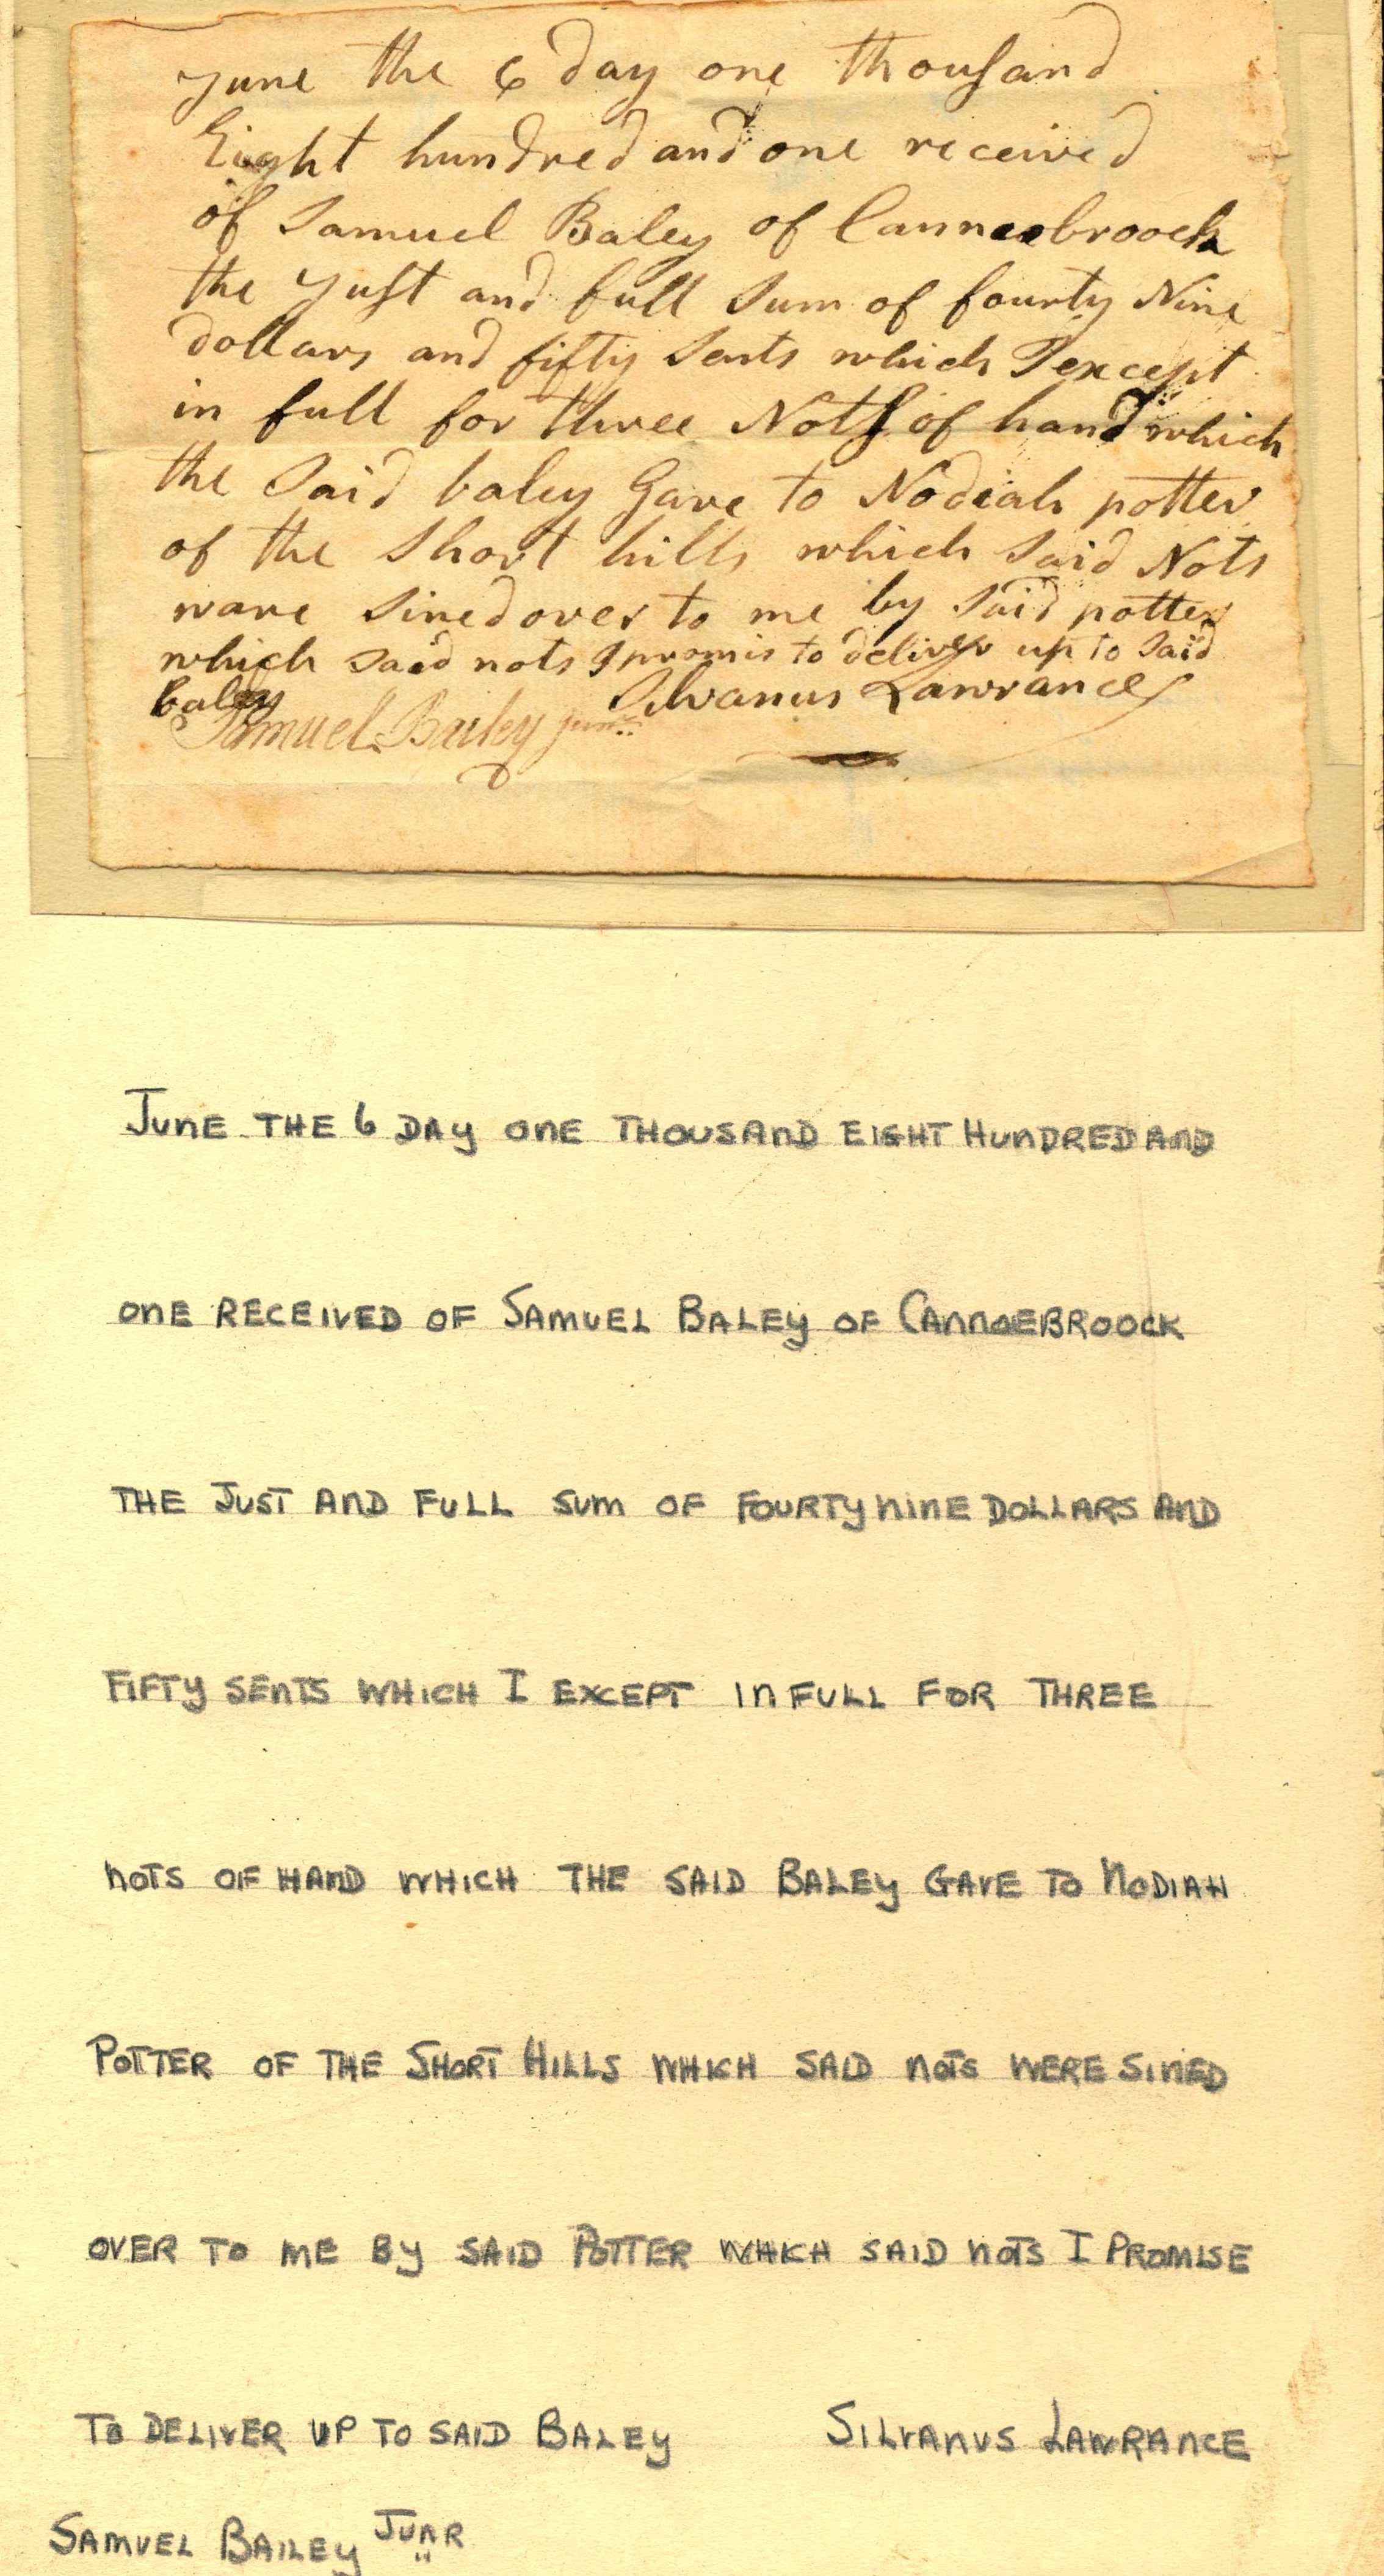 June the 6 day one thousand
Eight hundred and one received
of Samuel Baley of Cannoebroock
the Just and full Sum of fourty Nine
dollars and fifty Sents which I except
in full for three Nots of hand which
the Said baley Gave to Nodiah potter
of the Short hills which Said Nots
ware Sined over to me by Said potter
which said nots I promis to deliver up to Said
baley Silvanus Lawrance
Samuel Bailey junr
JUNE THE 6 DAY ONE THOUSAND EIGHT HUNDRED AND
ONE RECEIVED OF SAMUEL BALEY OF CANNOEBROOCK
THE JUST AND FULL SUM OF FOURTY NINE DOLLARS AND
FIFTY SENTS WHICH I EXCEPT IN FULL FOR THREE
NOTS OF HAND WHICH THE SAID BALEY GAVE TO NODIAH
POTTER OF THE SHORT HILLS WHICH SAID NOTS WERE SINED
OVER TO ME BY SAID POTTER WHICH SAID NOTS I PROMISE
TO DELIVER UP TO SAID BALEY SILVANUS LAWRANCE
SAMUEL BAILEY JUNR